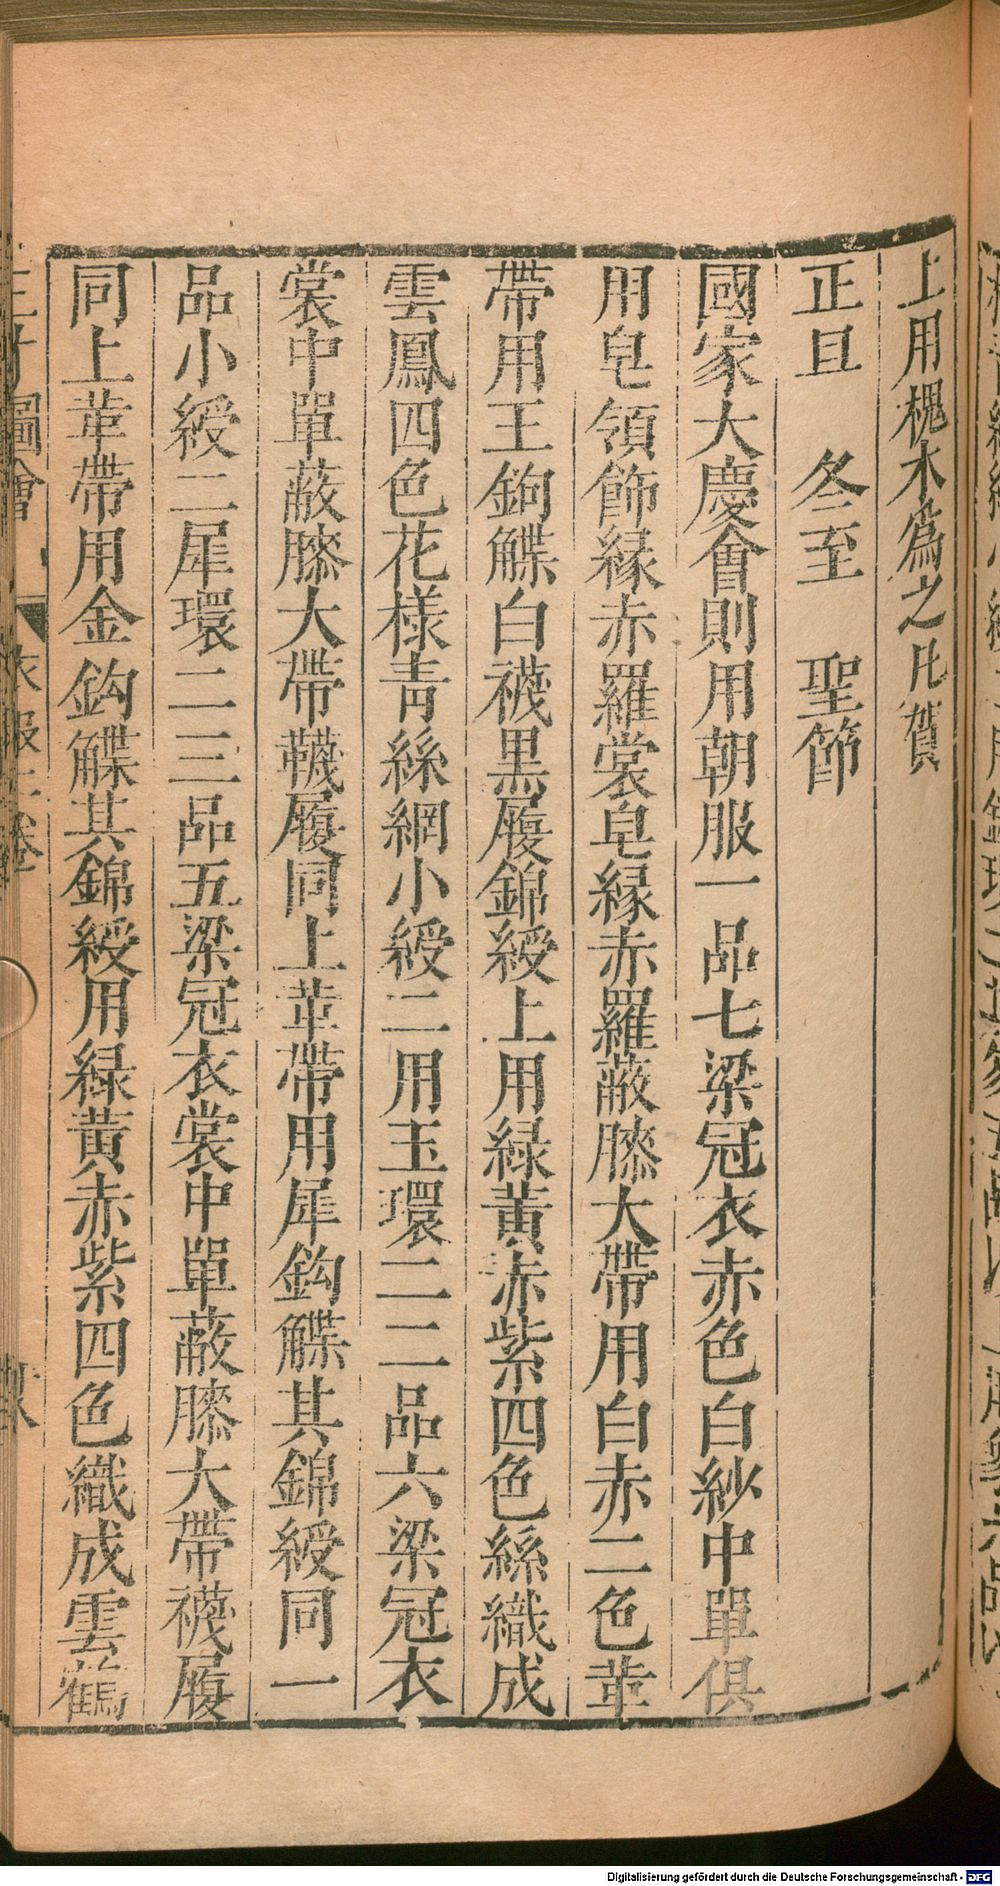 上用槐木為之凡賀
正旦　冬至　聖節
國家大慶會則用朝服一品七梁冠衣赤色白紗中單俱
用皂領飾緣赤羅裳皂緣赤羅蔽膝大帶用白赤二色革
帶用王鉤䚢白襪黑履錦綬上用緑黃赤紫四色絲織成
雲鳳四色花様青絲網小綬二用玉環二二品六梁冠衣
裳中單蔽膝大帶韈履同上革帶用犀鈎䚢其錦綬同一
品小綬二犀環二三品五梁冠衣裳中單蔽膝大帶襪履
同上革帶用金鈎䚢其錦綬用緑黃赤紫四色織成雲鶴
圖會
衣服
卷
Digitalisierung gefördert durch die Deutsche Forschungsgemeinschaft - DFG